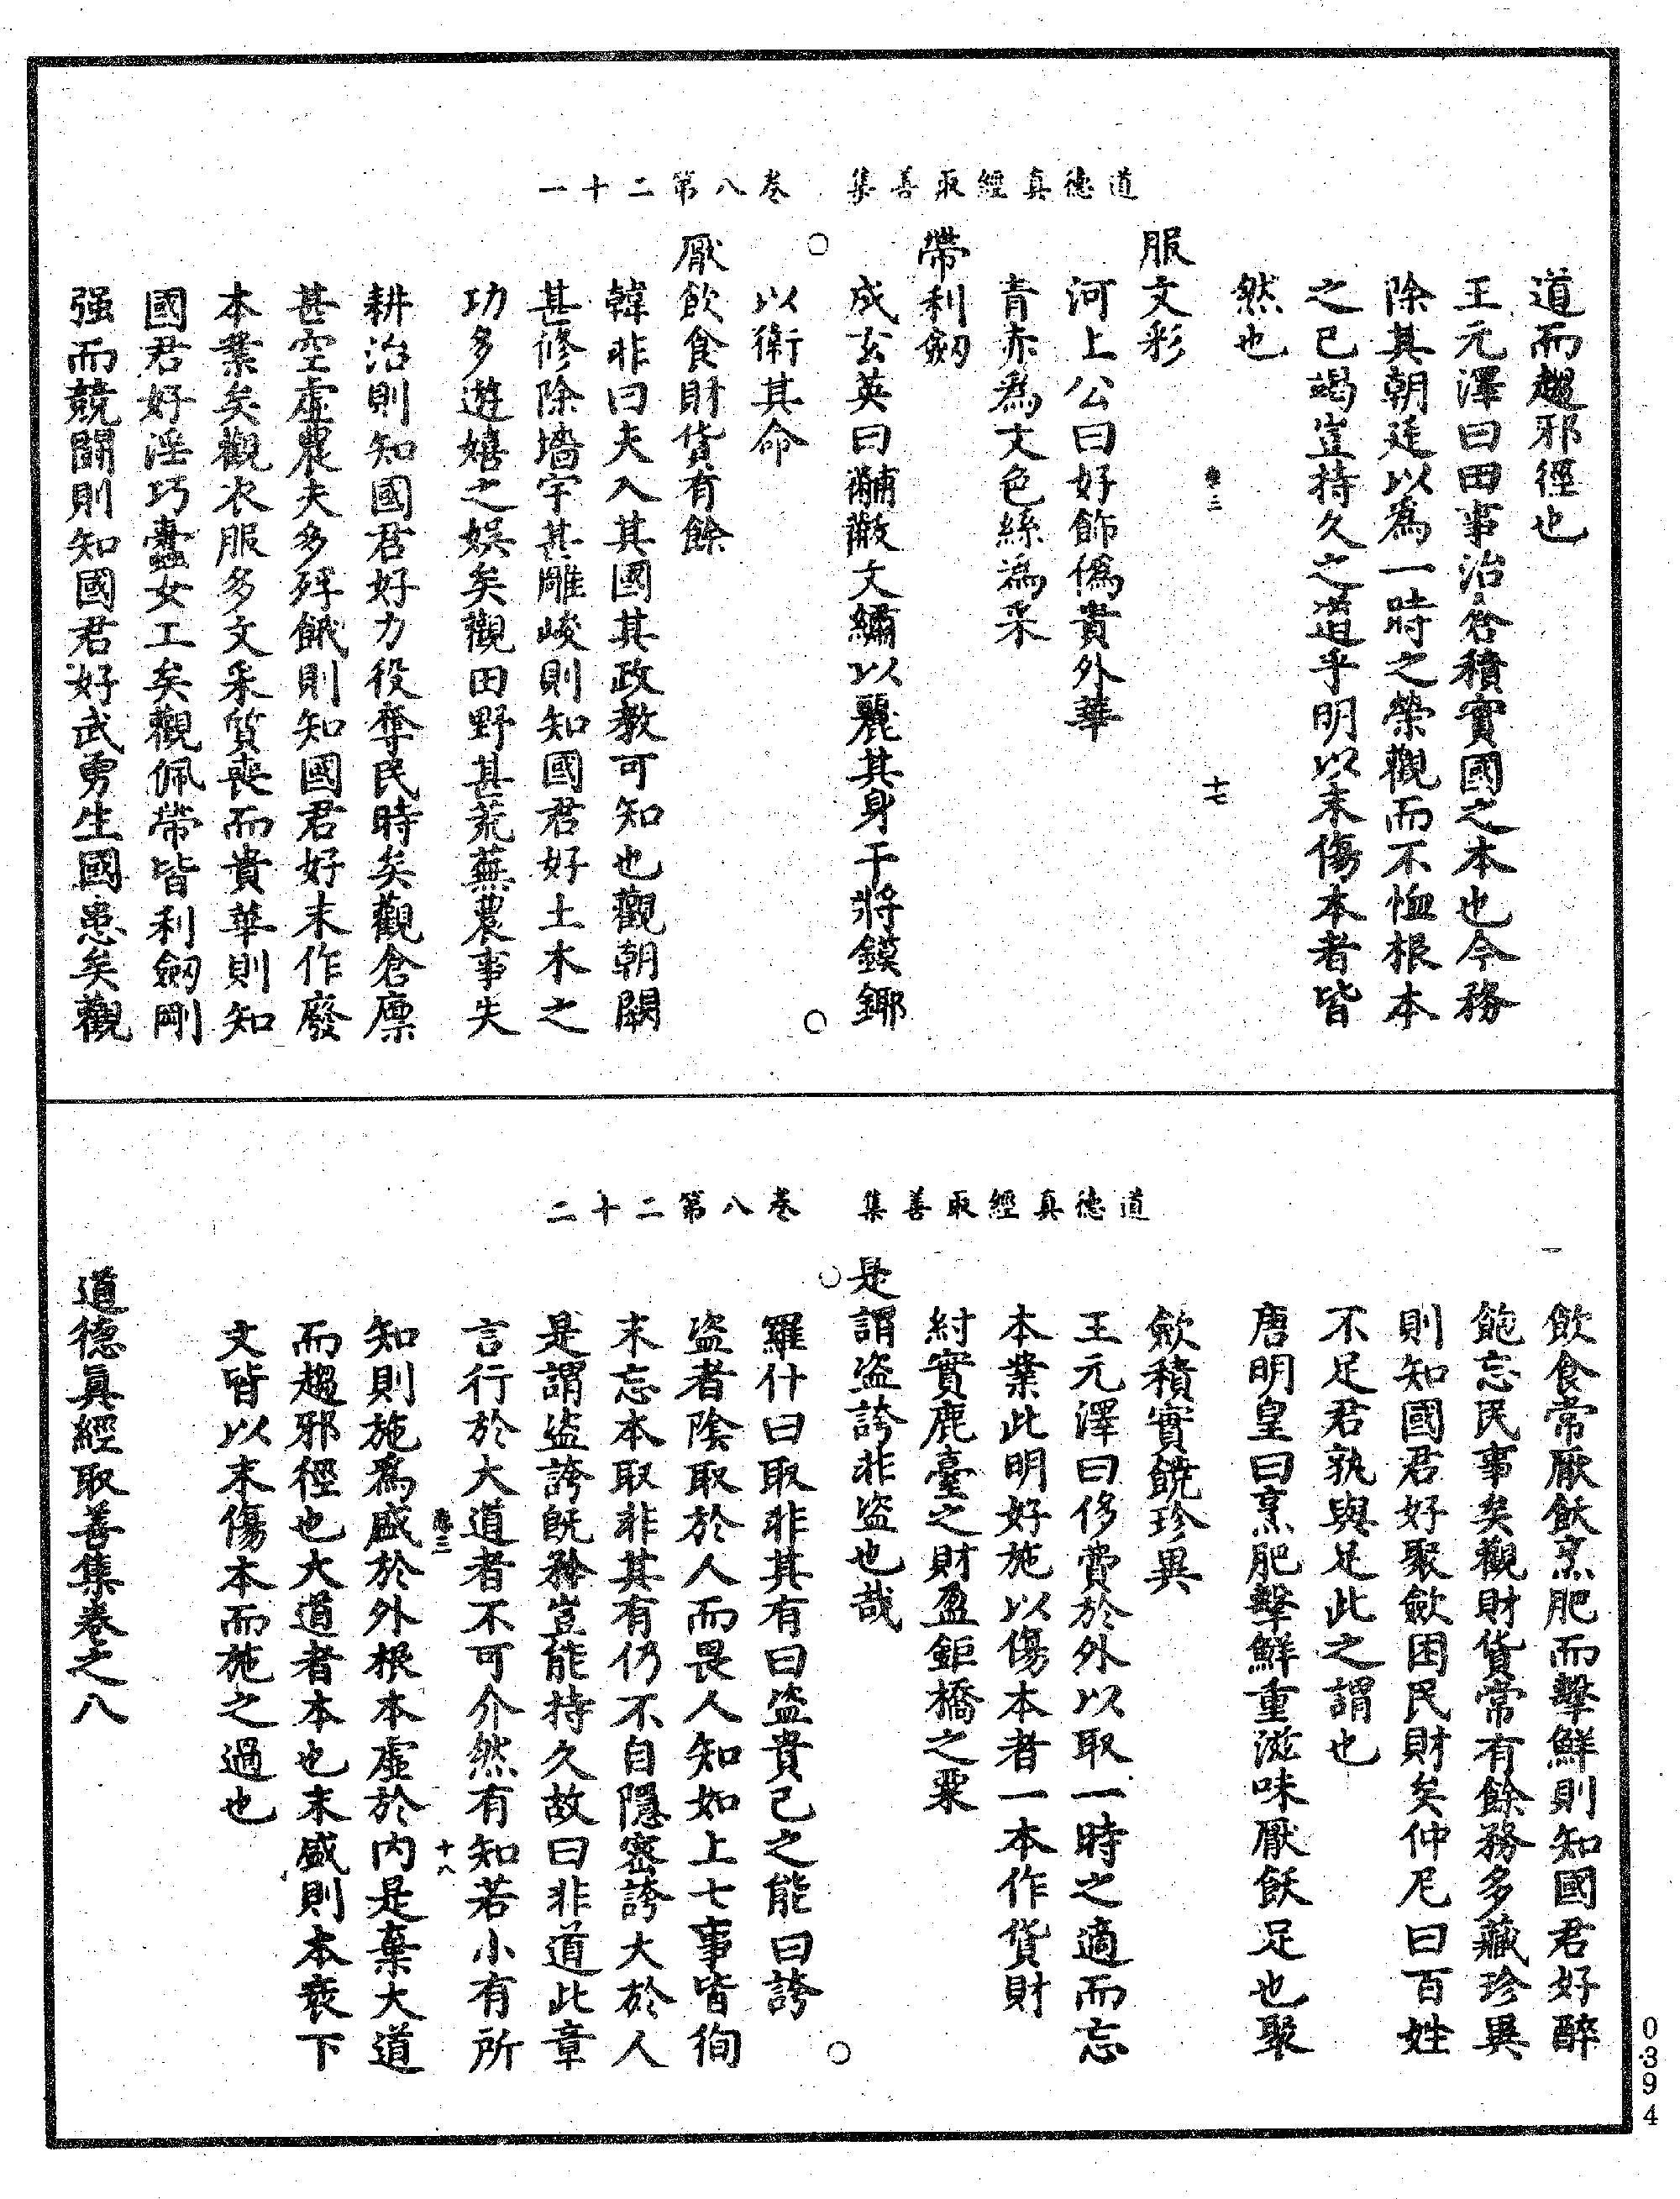 道德真經取善集　卷八第二十一
道而趨邪徑也
王元澤曰田事治倉積實國之本也今務
除其朝廷以為一時之榮觀而不恤根本
之已竭豈持久之道乎明以末傷本者皆
然也
卷三　十七
服文彩
河上公曰好飾偽貴外華
青赤為文色絲為采
帶利劒
成玄英曰黼黻文繡以麗其身干將鏌鋣
以衛其命
厭飲食財貨有餘
韓非曰夫入其國其政教可知也觀朝闕
甚修除墻宇甚雕峻則知國君好土木之
功多遊嬉之娛矣觀田野甚荒蕪農事失
耕治則知國君好力役奪民時矣觀倉廪
甚空虛農夫多殍餓則知國君好末作廢
本業矣觀衣服多文采質喪而貴華則知
國君好淫巧蠹女工矣觀佩帶皆利劒剛
强而競鬪則知國君好武勇生國患矣觀
道德真經取善集　卷八第二十二
飲食常厭飫烹肥而擊鮮則知國君好醉
飽忘民事矣觀財貨常有餘務多藏珍異
則知國君好聚歛困民財矣仲尼曰百姓
不足君孰與足此之謂也
唐明皇曰烹肥擊鮮重滋味厭飫足也聚
歛積實饒珍異
王元澤曰侈費於外以取一時之適而忘
本業此明好施以傷本者一本作貨財
紂實鹿臺之財盈鉅橋之粟
是謂盜誇非盜也哉
羅什曰取非其有曰盜貴己之能曰誇
盜者陰取於人而畏人知如上七事皆徇
末忘本取非其有仍不自隱密誇大於人
是謂盜誇旣矜豈能持久故曰非道此章
言行於大道者不可介然有知若小有所
卷三　十八
知則施為盛於外根本虛於內是棄大道
而趨邪徑也大道者本也末盛則本衰下
文皆以末傷本而施之過也
道德真經取善集卷之八
0394